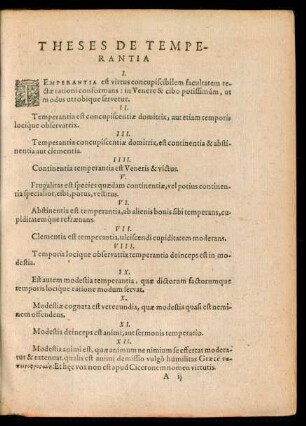 THESES DE TEMPE-
RANTIA
I.
TEMPERANTIA est virtus concupiscibilem facultatem re-
ctæ rationi conformans: in Venere & cibo potissimùm, ut
modus utrobique servetur.
II.
Temperantia est concupiscentiæ domitrix, aut etiam temporis
locique observatrix.
III.
Temperantia concupiscentiæ domitrix, est continentia & absti-
nentia aut clementia.
IIII.
Continentia temperantia est Veneris & victus.
V.
Frugalitas est species quædam continentiæ, vel potius continen-
tia specialior, cibi, potus, vestitus.
VI.
Abstinentia est temperantia, ab alienis bonis sibi temperans, cu-
piditatemque refrænans.
VII.
Clementia est temperantia, ulciscendi cupiditatem moderans.
VIII.
Temporis locique observatrix temperantia deinceps est in mo-
destia.
IX.
Est autem modestia temperantia, quæ dictorum factorumque
temporis locique ratione modum servat.
X.
Modestiæ cognata est verecundia, quæ modestia quasi est nemi-
nem offendens.
XI.
Modestia deinceps est animi, aut sermonis temperatio.
XII.
Modestia animi est, quæ animum ne nimium se efferat modera-
tur & extenuat, qualis est animi demissio vulgò humilitas Græcè
Et hæc vox non est apud Ciceronem nomen virtutis.
A ij